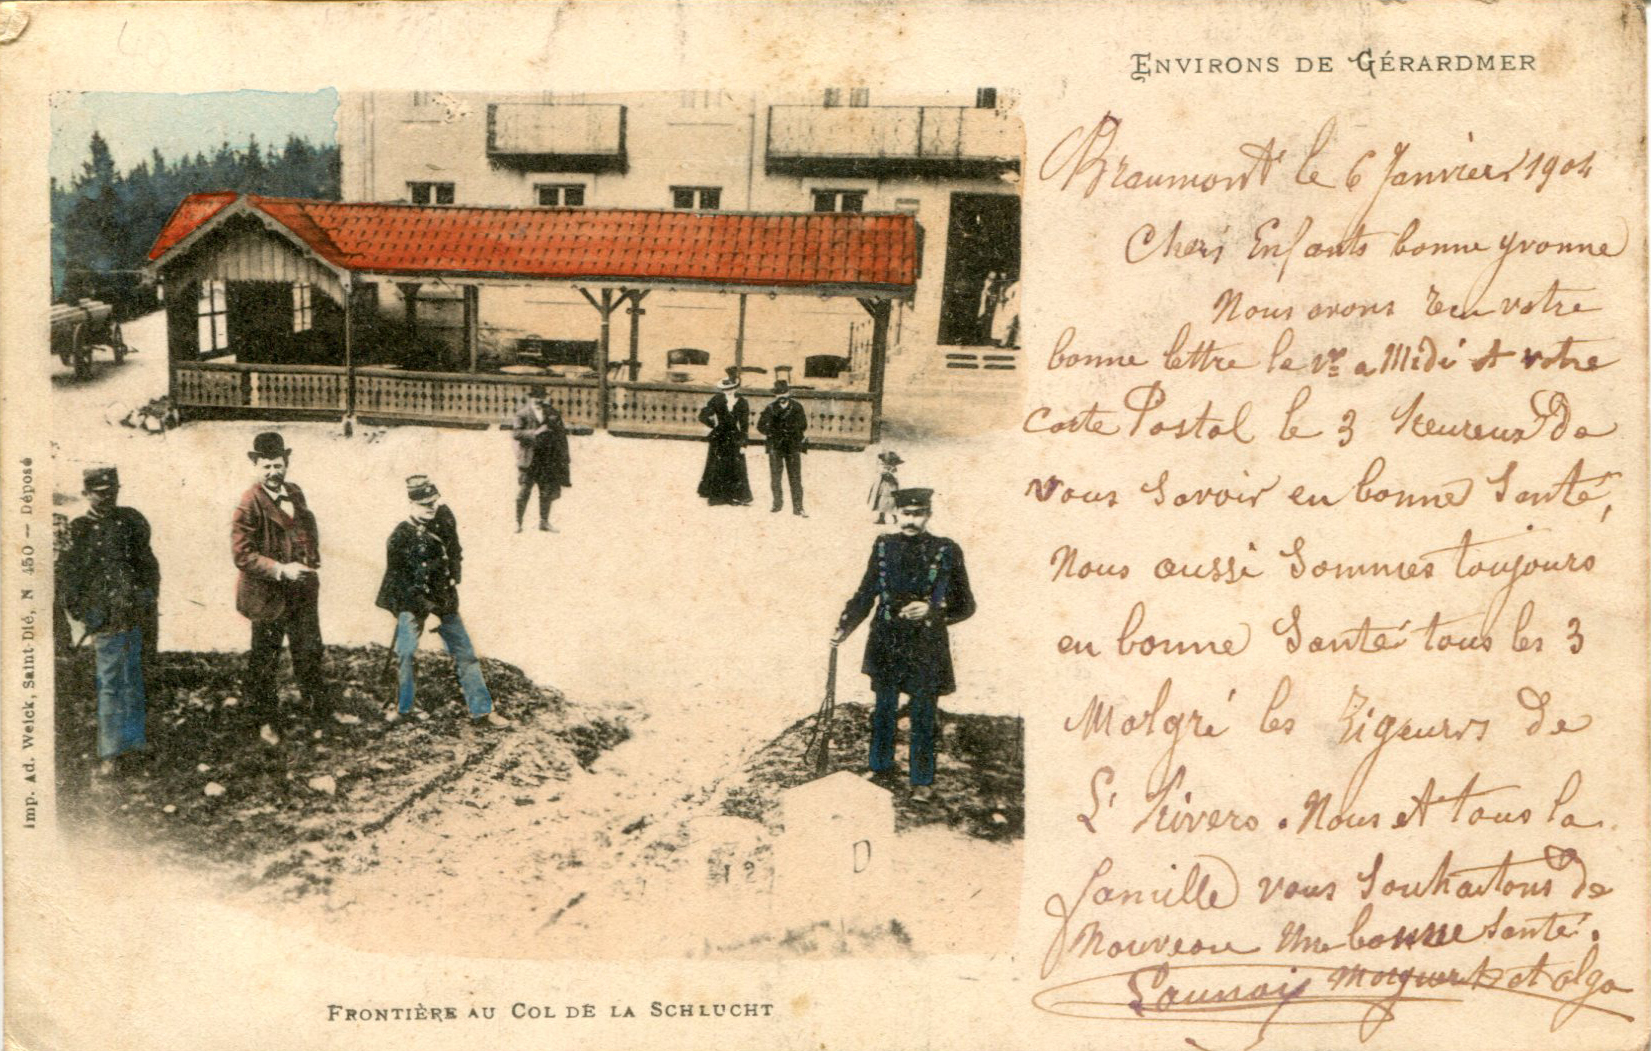 ENVIRONS DE GÉRARDMER
Braumont le 6 Janvier 1904
Chers Enfants bonne Yvonne
Nous avons Recu votre
bonne lettre le 1er a Midi et votre
Carte Postal le 3 heureux De
vous Savoir en bonne Santé,
Nous aussi Sommes toujours
en bonne Santé tous les 3
Malgré les Rigeurs De
L'hivers. Nous et tous la
famille vous Souhaitons De
Nouveau Une bonne Santé.
Launois Marguerite et Olga
FRONTIÈRE AU COL DE LA SCHLUCHT
Imp. Ad. Weick, Saint-Dié, N 450 — Déposé
D